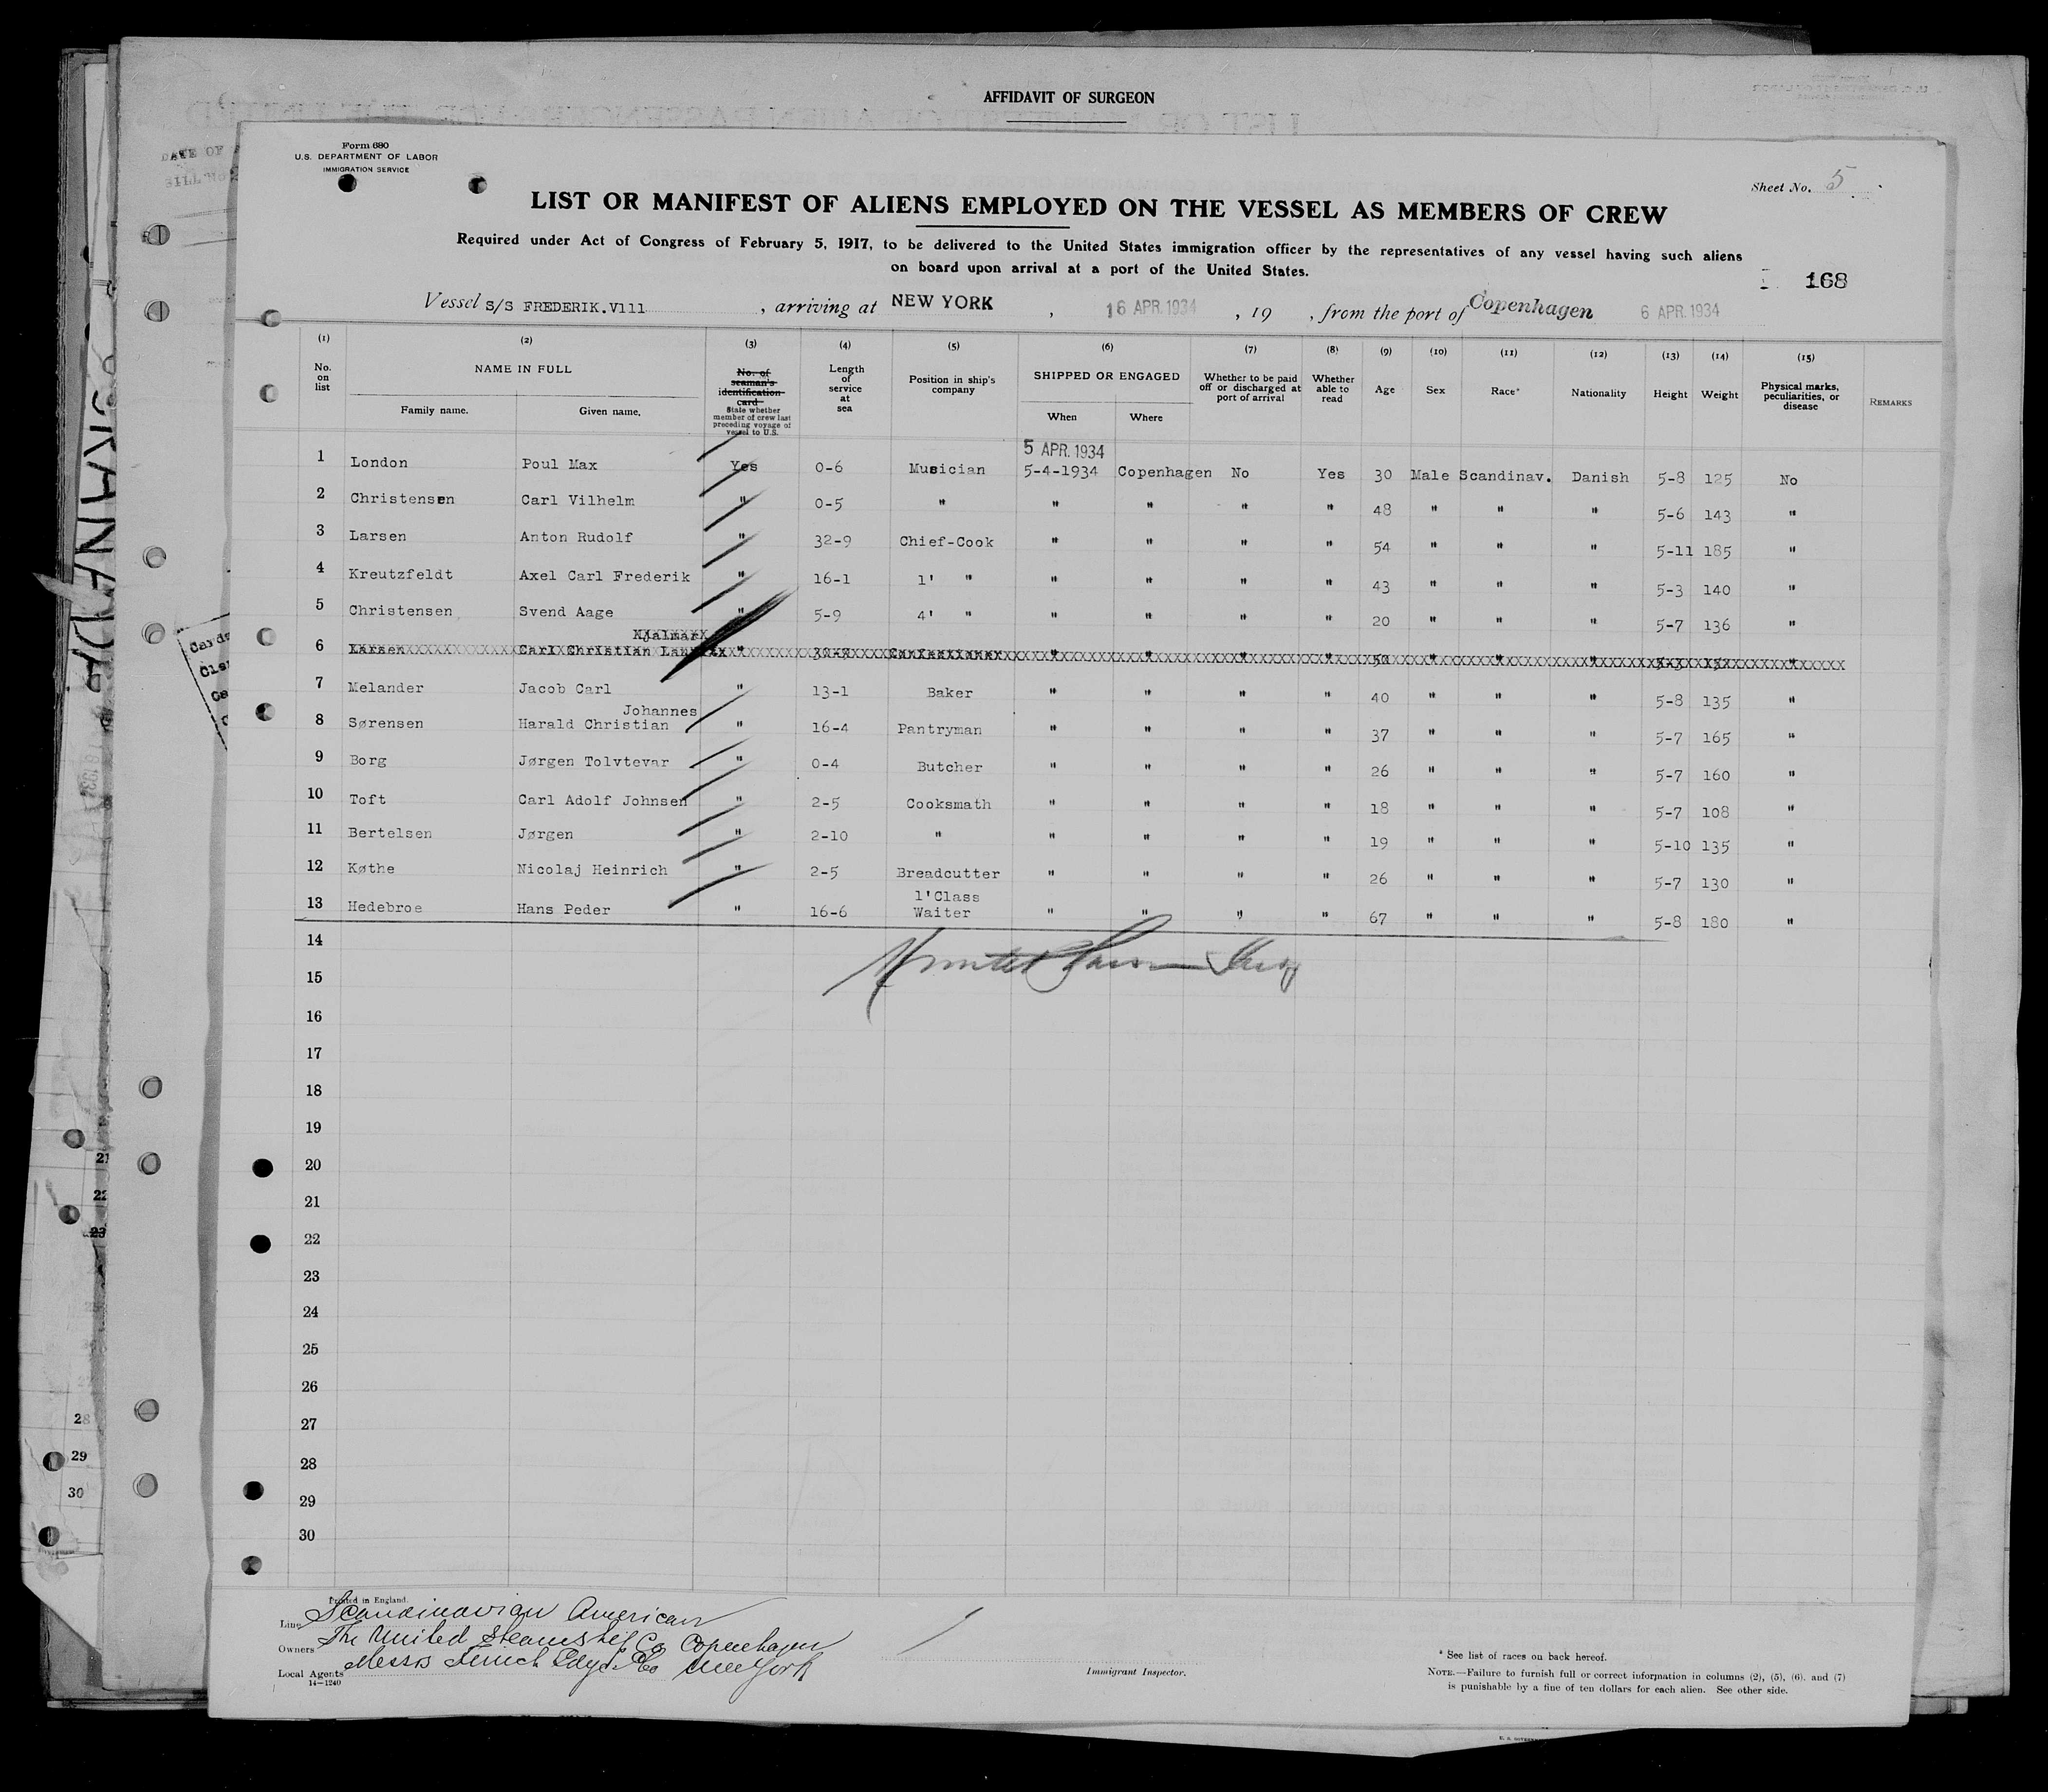 AFFIDAVIT OF SURGEON
Form 680
U.S. DEPARTMENT OF LABOR
IMMIGRATION SERVICE
Sheet No. 5
LIST OR MANIFEST OF ALIENS EMPLOYED ON THE VESSEL AS MEMBERS OF CREW
Required under Act of Congress of February 5, 1917, to be delivered to the United States immigration officer by the representatives of any vessel having such aliens
on board upon arrival at a port of the United States.
168
Vessel S/S FREDERIK.V111, arriving at NEW YORK, 16 APR. 1934, 19 , from the port of Copenhagen 6 APR. 1934
(1) (2) (3) (4) (5) (6) (7) (8) (9) (10) (11) (12) (13) (14) (15)
No. on list NAME IN FULL Family name. Given name. No. of seaman's identification card State whether member of crew last preceding voyage of vessel to U.S. Length of service at sea Position in ship's company SHIPPED OR ENGAGED When Where Whether to be paid off or discharged at port of arrival Whether able to read Age Sex Race* Nationality Height Weight Physical marks, peculiarities, or disease REMARKS
5 APR. 1934
1 London Poul Max Yes 0-6 Musician 5-4-1934 Copenhagen No Yes 30 Male Scandinav. Danish 5-8 125 No
2 Christensen Carl Vilhelm " 0-5 " " " " " 48 " " " 5-6 143 "
3 Larsen Anton Rudolf " 32-9 Chief-Cook " " " " 54 " " " 5-11 185 "
4 Kreutzfeldt Axel Carl Frederik " 16-1 1' " " " " " 43 " " " 5-3 140 "
5 Christensen Svend Aage " 5-9 4' " " " " " 20 " " " 5-7 136 "
6 Larsen Carl Christian " Confectioner " " " " " " " "
7 Melander Jacob Carl " 13-1 Baker " " " " 40 " " " 5-8 135 "
Johannes
8 Sørensen Harald Christian " 16-4 Pantryman " " " " 37 " " " 5-7 165 "
9 Borg Jørgen Tolvtevar " 0-4 Butcher " " " " 26 " " " 5-7 160 "
10 Toft Carl Adolf Johnsen " 2-5 Cooksmath " " " " 18 " " " 5-7 108 "
11 Bertelsen Jørgen " 2-10 " " " " " 19 " " " 5-10 135 "
12 Køthe Nicolaj Heinrich " 2-5 Breadcutter " " " " 26 " " " 5-7 130 "
1'Class
13 Hedebroe Hans Peder " 16-6 Waiter " " " " 67 " " " 5-8 180 "
14
15
16
17
18
19
20
21
22
23
24
25
26
27
28
29
30
Printed in England.
Line Scandinavian American
Owners The United Steamship Co Copenhagen
Local Agents Messrs New York
14—1240
Immigrant Inspector.
* See list of races on back hereof.
NOTE.—Failure to furnish full or correct information in columns (2), (5), (6), and (7)
is punishable by a fine of ten dollars for each alien. See other side.